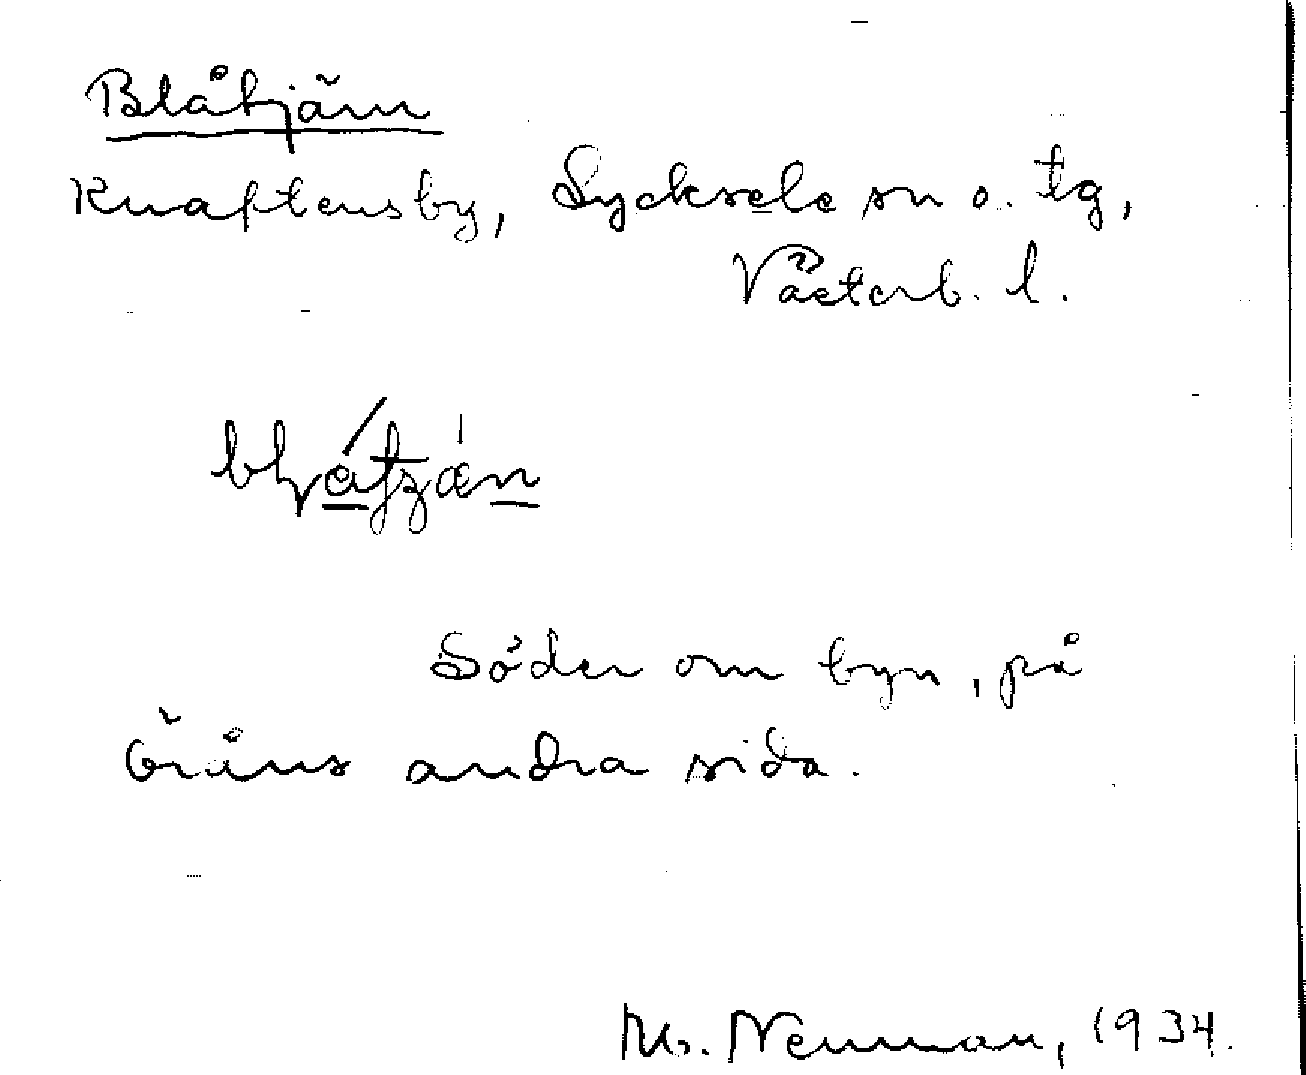 Blåtjärn
Knaftensby, Lycksele sn o. tg,
Västerb. l.
Söder om byn, på
Öråns andra sida.
M. Nenman, 1934.